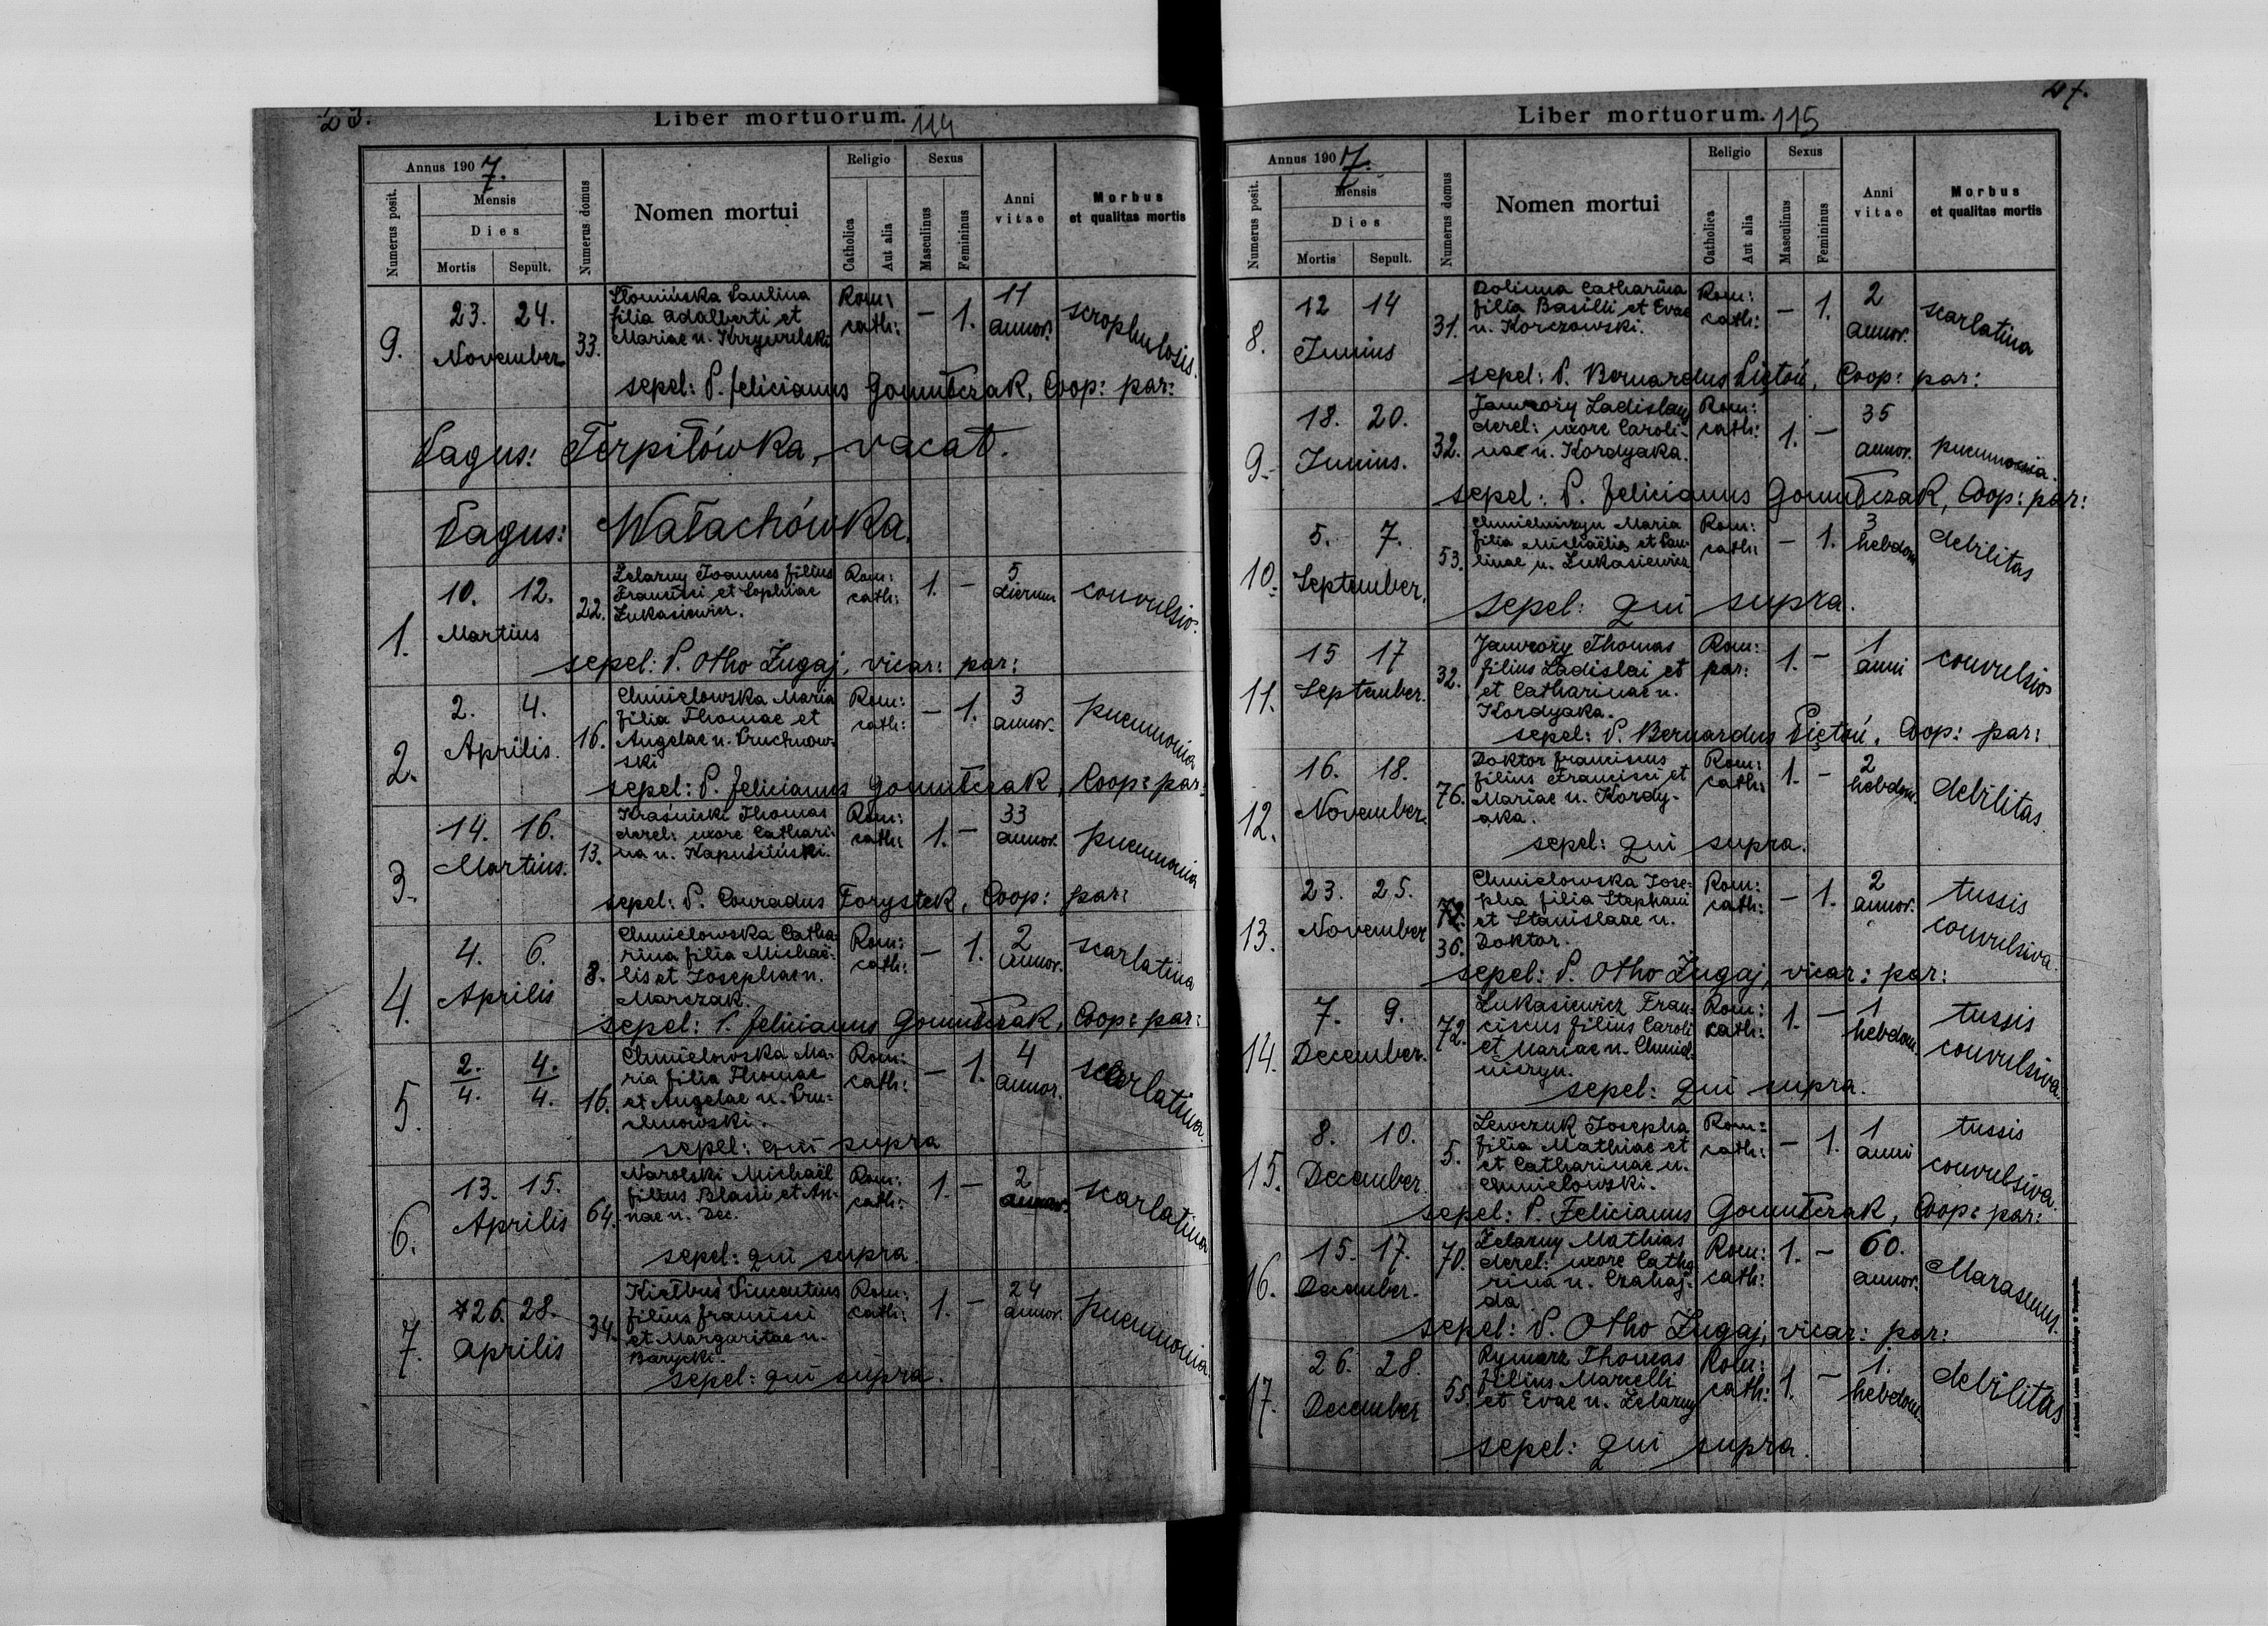 23.
Liber mortuorum. 114
Annus 1907.
Numerus posit.
Mensis
Dies
Mortis Sepult.
Numerus domus
Nomen mortui
Religio
Catholica
Aut alia
Sexus
Masculinus
Femininus
Anni
vitae
Morbus
et qualitas mortis
9. 23. 24. November 33.
Słomińska Paulina
filia Adalberti et
Mariae n. Krzywulski
Rom: cath: — 1. 11 annor. scrophulosis.
sepel: P. Felicianus Gomułczak, Coop: par:
Pagus: Terpiłówka, vacat.
Pagus: Wałachówka.
1. 10. 12. Martius 22.
Żelazny Joannes filius
Francisci et Sophiae
Łukasiewicz.
Rom: cath: 1. — 5 dierum convulsio.
sepel: P. Otho Żugaj, vicar: par:
2. 2. 4. Aprilis. 16.
Chmielowska Maria
filia Thomae et
Angelae n. Pruchnow-
ski
Rom: cath: — 1. 3 annor. pneumonia
sepel: P. Felicianus Gomułczak, Coop: par:
3. 14. 16. Martius. 13.
Kraśnicki Thomas
derel: uxore Cathari-
na n. Kapuściński.
Rom: cath: 1. — 33 annor. pneumonia
sepel: P. Conradus Forystek, Coop: par:
4. 4. 6. Aprilis 8.
Chmielowska Catha-
rina filia Michaë-
lis et Josephae n.
Marczak.
Rom: cath: — 1. 2 annor. scarlatina
sepel: P. Felicianus Gomułczak, Coop: par:
5. 2./4. 4./4. 16.
Chmielowska Ma-
ria filia Thomae
et Angelae n. Pru-
chnowski.
Rom: cath: — 1. 4 annor. scarlatina.
sepel: qui supra
6. 13. 15. Aprilis 64.
Narolski Michaël
filius Blasii et An-
nae n. Dec.
Rom: cath: 1. — 2 annor. scarlatina
sepel: qui supra.
7. 26. 28. Aprilis 34.
Kiełbus Vincentius
filius Francisci
et Margaritae n.
Barycki.
Rom: cath: 1. — 24 annor. pneumonia.
sepel: qui supra.
Liber mortuorum. 115
Annus 1907.
Numerus posit.
Mensis
Dies
Mortis Sepult.
Numerus domus
Nomen mortui
Religio
Catholica
Aut alia
Sexus
Masculinus
Femininus
Anni
vitae
Morbus
et qualitas mortis
8. 12 14 Junius 31.
Dolinna Catharina
filia Basilii et Evae
n. Korczowski.
Rom: cath: — 1. 2 annor. scarlatina
sepel: P. Bernardus Piętoń, Coop: par:
9. 18. 20. Junius. 32.
Jaworży Ladislaus
derel: uxore Caroli-
nae n. Kordyaka.
Rom: cath: 1. — 35 annor. pneumonia.
sepel: P. Felicianus Gomułczak, Coop: par:
10. 5. 7. September. 53.
Maria
filia Michaëlis et Pau-
linae n. Łukasiewicz
Rom: cath: — 1. 3 hebdom. debilitas
sepel: qui supra.
11. 15 17 September. 32.
Jaworży Thomas
filius Ladislai et
et Catharinae n.
Kordyaka.
Rom: par: 1. — 1 anni convulsio
sepel: P. Bernardus Piętoń. Coop: par:
12. 16. 18. November. 76.
Doktor Franciscus
filius Francisci et
Mariae n. Kordy-
aka.
Rom: cath: 1. — 2 hebdom. debilitas.
sepel: qui supra.
13. 23. 25. November 36.
Chmielowska Jose-
pha filia Stephani
et Stanislaae n.
Doktor.
Rom: cath: — 1. 2 annor. tussis convulsiva.
sepel: P. Otho Żugaj, vicar: par:
14. 7. 9. December. 72.
Łukasiewicz Fran-
ciscus filius Caroli
et Mariae n. Chmiel-
niczyn.
Rom: cath: 1. — 1 hebdom. tussis convulsiva.
sepel: qui supra.
15. 8. 10. December. 5.
Lewczuk Josepha
filia Mathiae et
et Catharinae n.
Chmielowski.
Rom: cath: — 1. 1 anni tussis convulsiva.
sepel: P. Felicianus Gomułczak, Coop: par:
16. 15. 17. December. 70.
Żelazny Mathias
derel: uxore Catha
rina n. Czahaj-
da.
Rom: cath: 1. — 60. annor. Marasmus.
sepel: P. Otho Żugaj, vicar: par:
17. 26. 28. December 55.
Rymarz Thomas
filius Marcelli
et Evae n. Żelazny
Rom: cath: 1. — 1. hebdom. debilitas
sepel: qui supra.